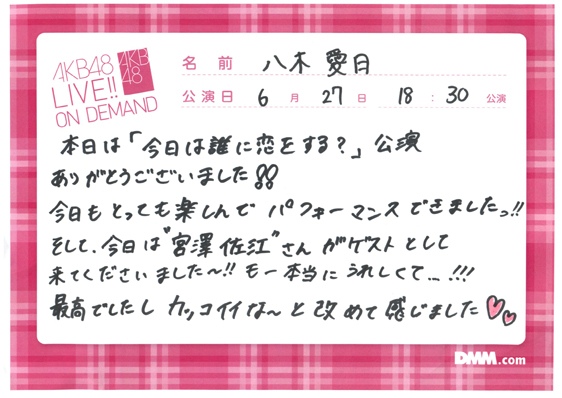 AKB48
LIVE!!
ON DEMAND
AKB
48
名前 八木愛月
公演日 6月27日 18:30公演
本日は「今日は誰に恋をする?」公演
ありがとうございました!!
今日もとっても楽しんでパフォーマンスできましたっ!!
そして、今日は"宮澤佐江"さんがゲストとして
来てくださいました〜!! もー本当にうれしくて...!!!
最高でしたしカッコイイな〜と改めて感じました♡♡
DMM.com